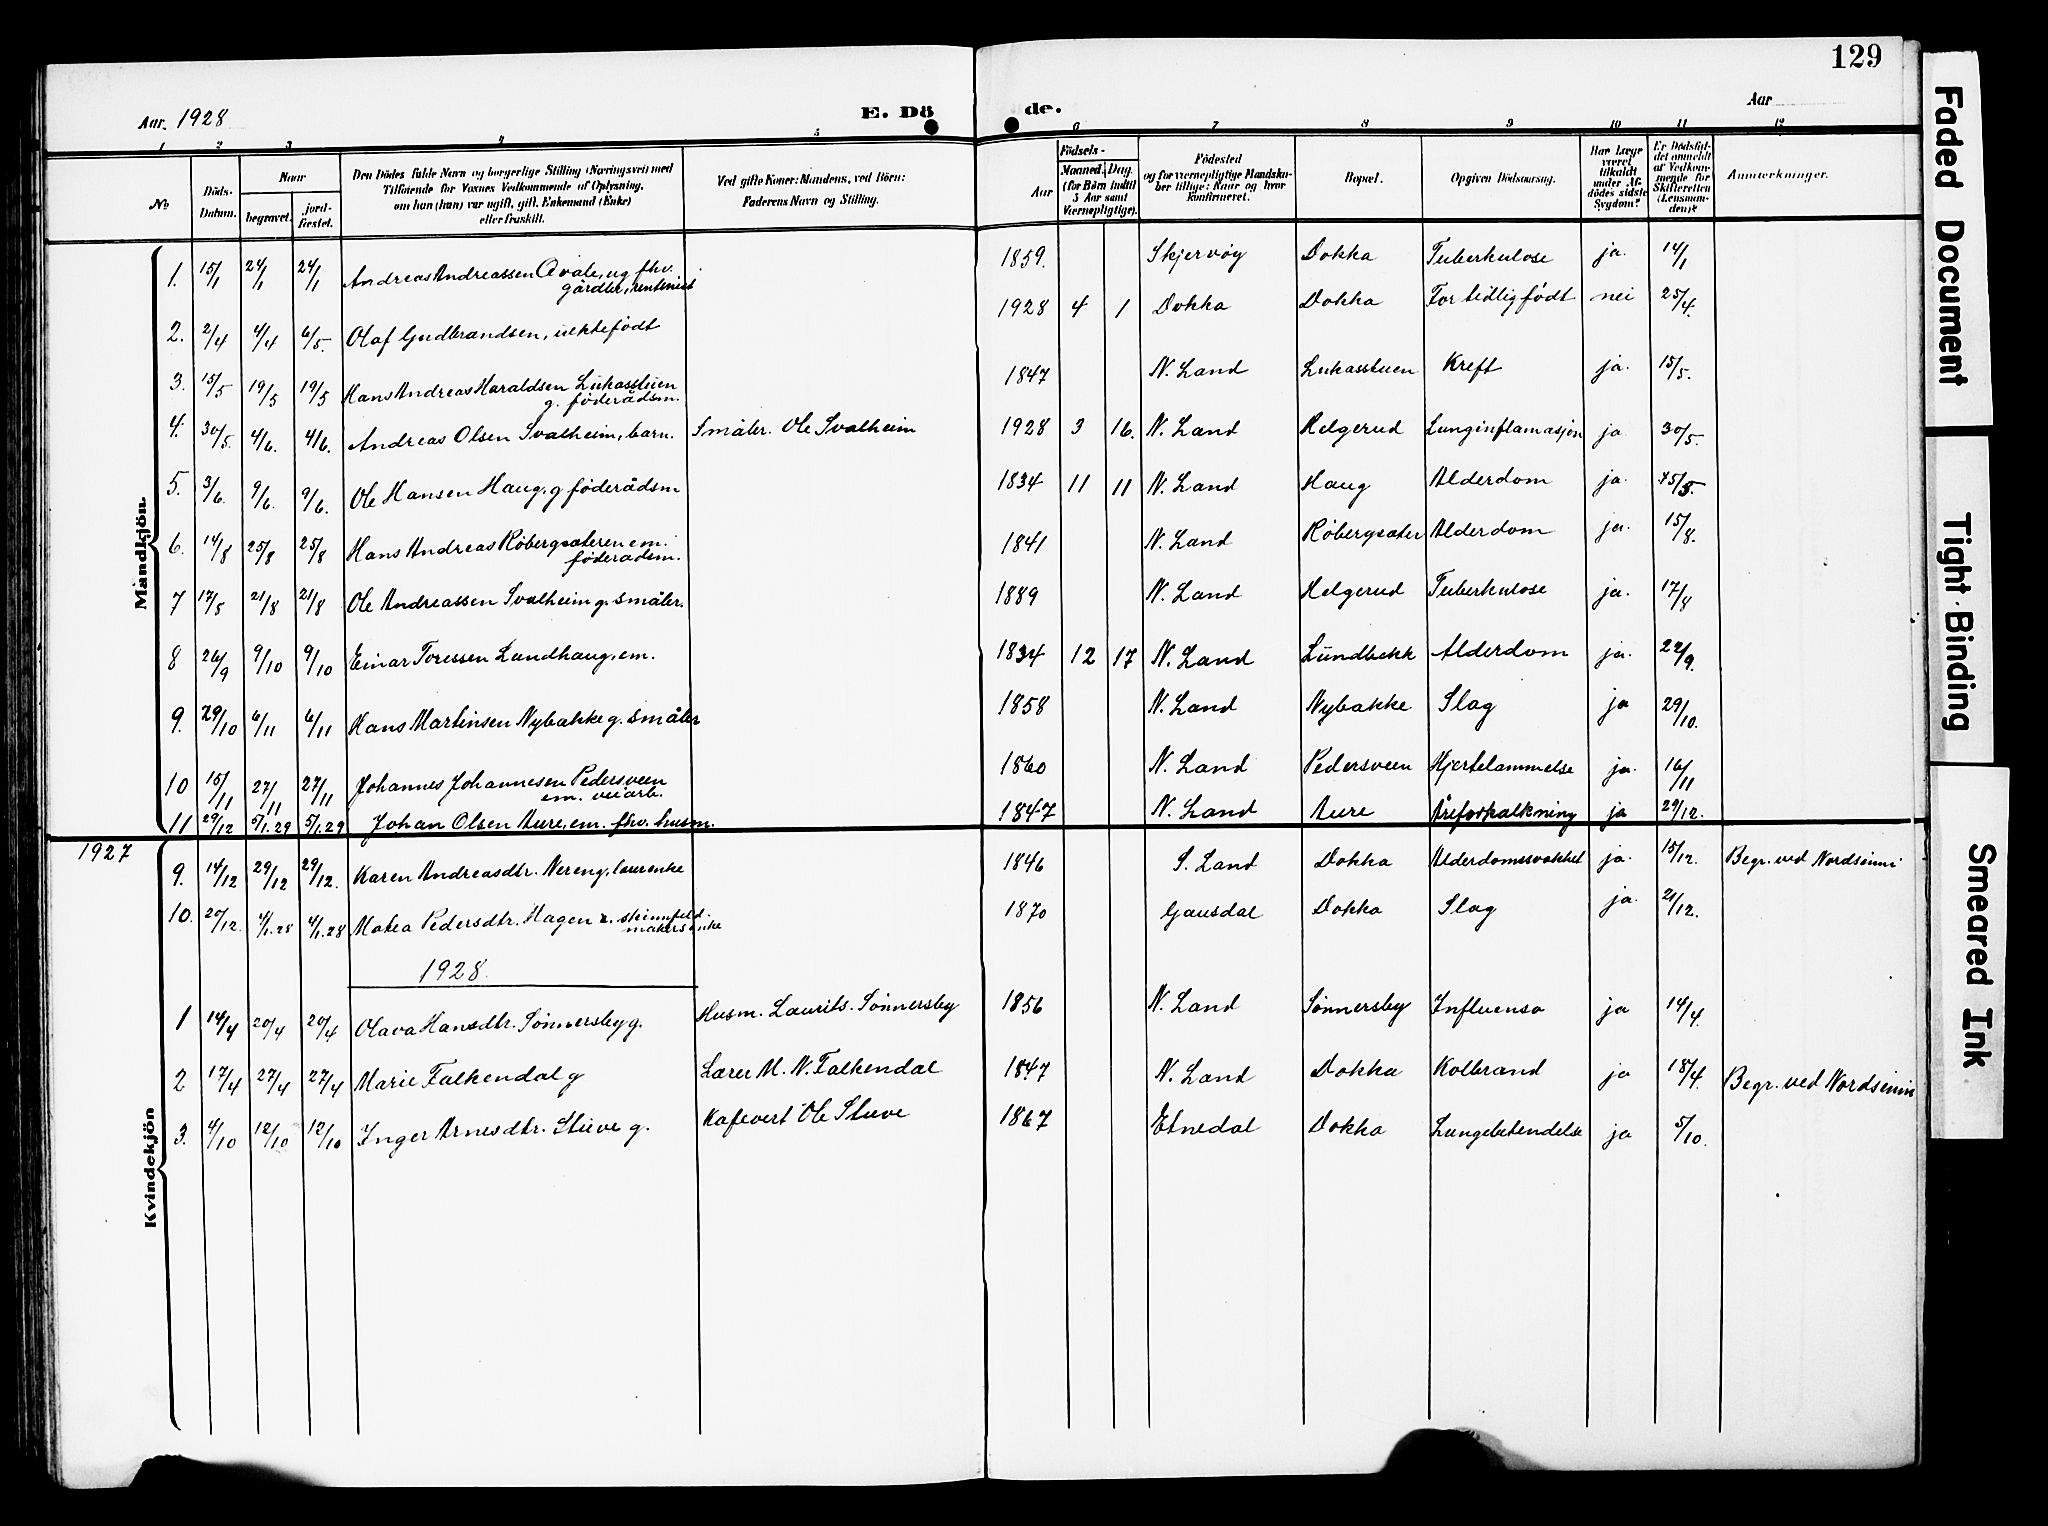 129
Aar. 1928
E. Dö de.
Aar
1 2 3 4 5 6 7 8 9 10 11 12
No
Döds-Datum.
Naar
begravet.
jord-fæstet.
Den Dödes fulde Navn og borgerlige Stilling (Næringsvei) med
Tilföiende for Voxnes Vedkommende af Oplysning,
om han (hun) var ugift, gift, Enkemand (Enke)
eller fraskilt.
Ved gifte Koner: Mandens, ved Börn:
Faderens Navn og Stilling.
Födsels-
Aar
Maaned. Dag.
(for Börn indtil
5 Aar samt
Værnepligtige).
Födested
og for værnepligtige Mandska-
ber tillige: Naar og hvor
konfirmeret.
Bopæl.
Opgiven Dödsaarsag.
Har Læge
været
tilkaldt
under Af-
dödes sidste
Sygdom?
Er Dödsfal-
det anmeldt
af Vedkom-
mende for
Skifteretten
(Lensman-
den)?
Anmærkninger.
Mandkjön.
1. 15/1 24/1 24/1 Andreas Andreassen Ovale, ug. fhv. gårdbr., rentenist 1859. Skjervøy Dokka Tuberkulose ja. 14/1
2. 2/4 4/4 6/5. Olaf Gudbrandsen, uektefødt 1928 4 1 Dokka Dokka For tidlig født nei 25/4.
3. 15/5 19/5 19/5 Hans Andreas Haraldsen Lukasstuen g. føderådsm. 1847 N. Land Lukasstuen Kreft ja. 15/5.
4. 30/5. 4/6. 4/6. Andreas Olsen Svalheim, barn. Småbr. Ole Svalheim 1928 3 16. N. Land Helgerud Lunginflamasjon ja 30/5.
5. 3/6. 9/6. 9/6. Ole Hansen Haug, g føderådsm 1834 11 11 N. Land Haug Alderdom ja.
6. 14/8 25/8 25/8 Hans Andreas Røbergsæteren em. føderadsm. 1841 N. Land Røbergsæter Alderdom ja. 15/8.
7 17/5 21/8 21/8 Ole Andreassen Svalheim g. småbr. 1889 N. Land Helgerud Tuberkulose ja. 17/8
8 26/9 9/10 9/10 Einar Toressen Lundhaug, em. 1834 12 17 N. Land Lundbekk Alderdom ja. 22/9.
9. 29/10 6/11 6/11 Hans Martinsen Nybakke g. småbr 1858 N. Land Nybakke Slag ja 29/10.
10 15/11 27/11 27/11 Johannes Johannesen Pedersveen em. veiarb. 1860 N. Land Pedersveen Hjertelammelse ja. 16/11
11 29/12 5/1.29 5/1.29 Johan Olsen Aure, em. fhv. husm. 1847 N. Land Aure Åreforkalkning ja 29/12.
1927
Kvindekjön
9. 14/12 29/12 29/12. Karen Andreasdtr. Nereng, lærerenke 1846 S. Land Dokka Alderdomssvakhet ja. 15/12. Begr. ved Nordsinni
10. 20/12. 4/1.28 4/1.28 Matea Pedersdtr. Hagen skinnfeldmakersenke 1870 Gausdal Dokka Slag ja. 21/12.
1928.
1 14/4 20/4 20/4 Olava Hansdtr. Sønnersby g. Husm. Laurits. Sønnersby 1856 N. Land Sønnersby Influensa ja 14/4.
2 17/4 27/4 27/4 Marie Falkendal g Lærer M. N. Falkendal 1847 N. Land Dokka Kolbrand ja 18/4. Begr. ved Nordsinni
3. 4/10 12/10 12/10 Inger Arnesdtr. Stuve g. Kafevert Ole Stuve 1867 Etnedal Dokka Lungebetendelse ja 5/10.
Faded Document
Tight Binding
Smeared Ink